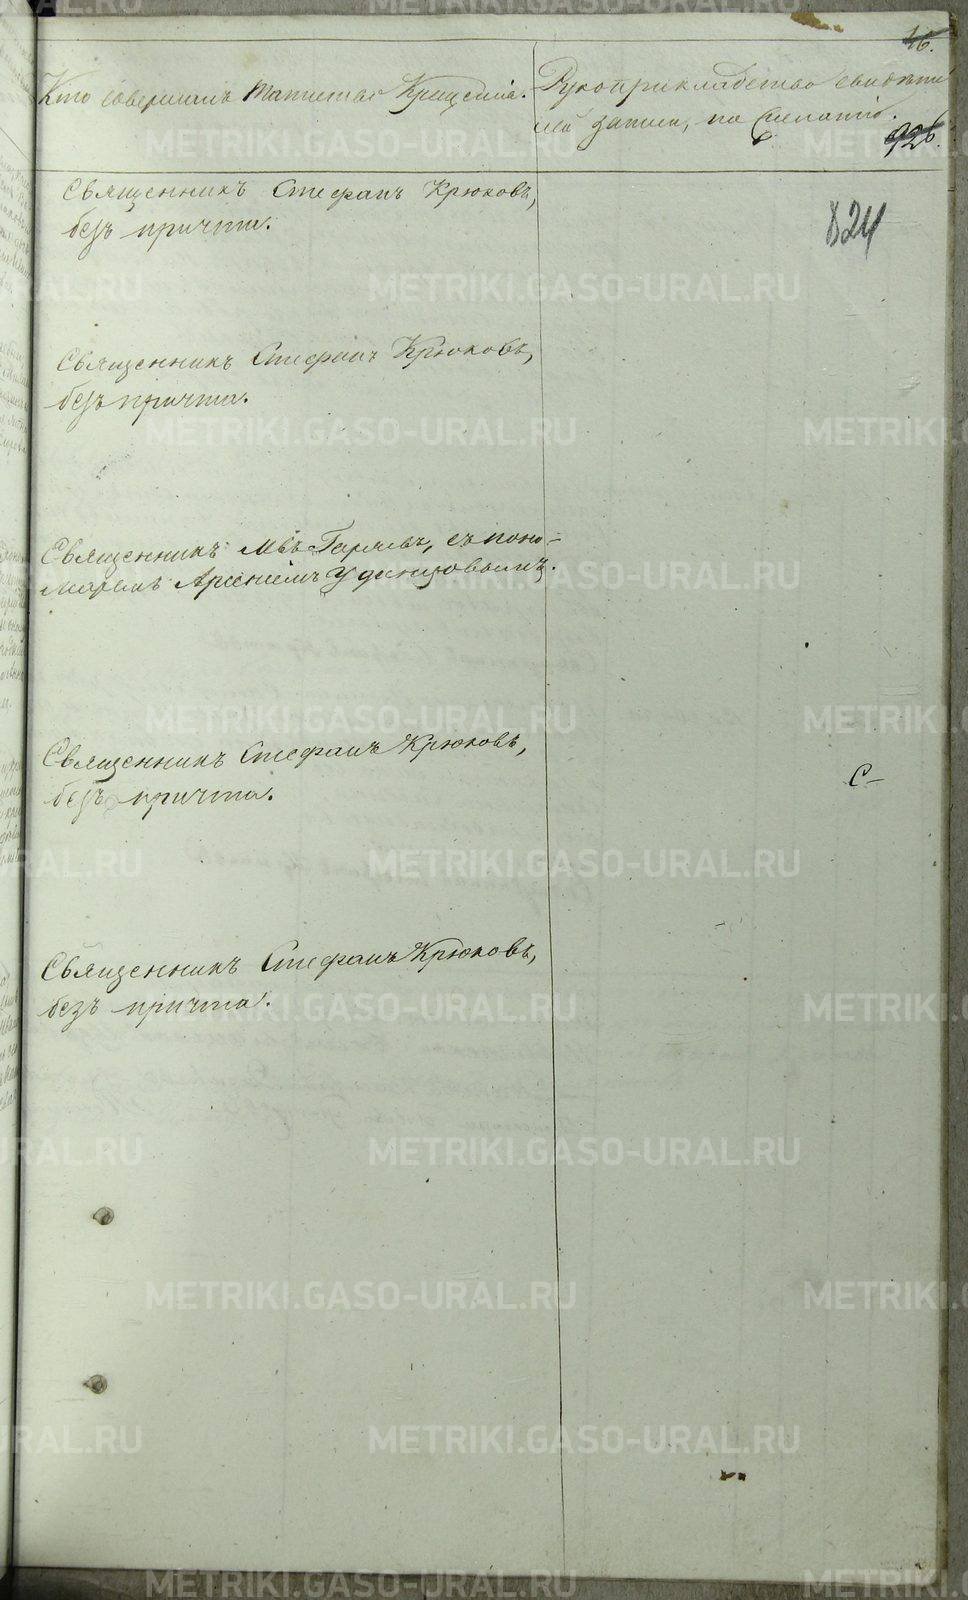 46.
Кто совершалъ Таинство Крещенія.
Рукоприкладство свидѣте
лей записи, по желанію.
926.
824
Священникъ Стефанъ Крюковъ,
безъ причта.
Священникъ Стефанъ Крюковъ,
безъ причта.
Священникъ Гаряевъ, съ поно-
маремъ Арсеніемъ Удинцовымъ.
Священникъ Стефанъ Крюковъ,
безъ причта.
С-
Священникъ Стефанъ Крюковъ,
безъ причта.
METRIKI.GASO-URAL.RU